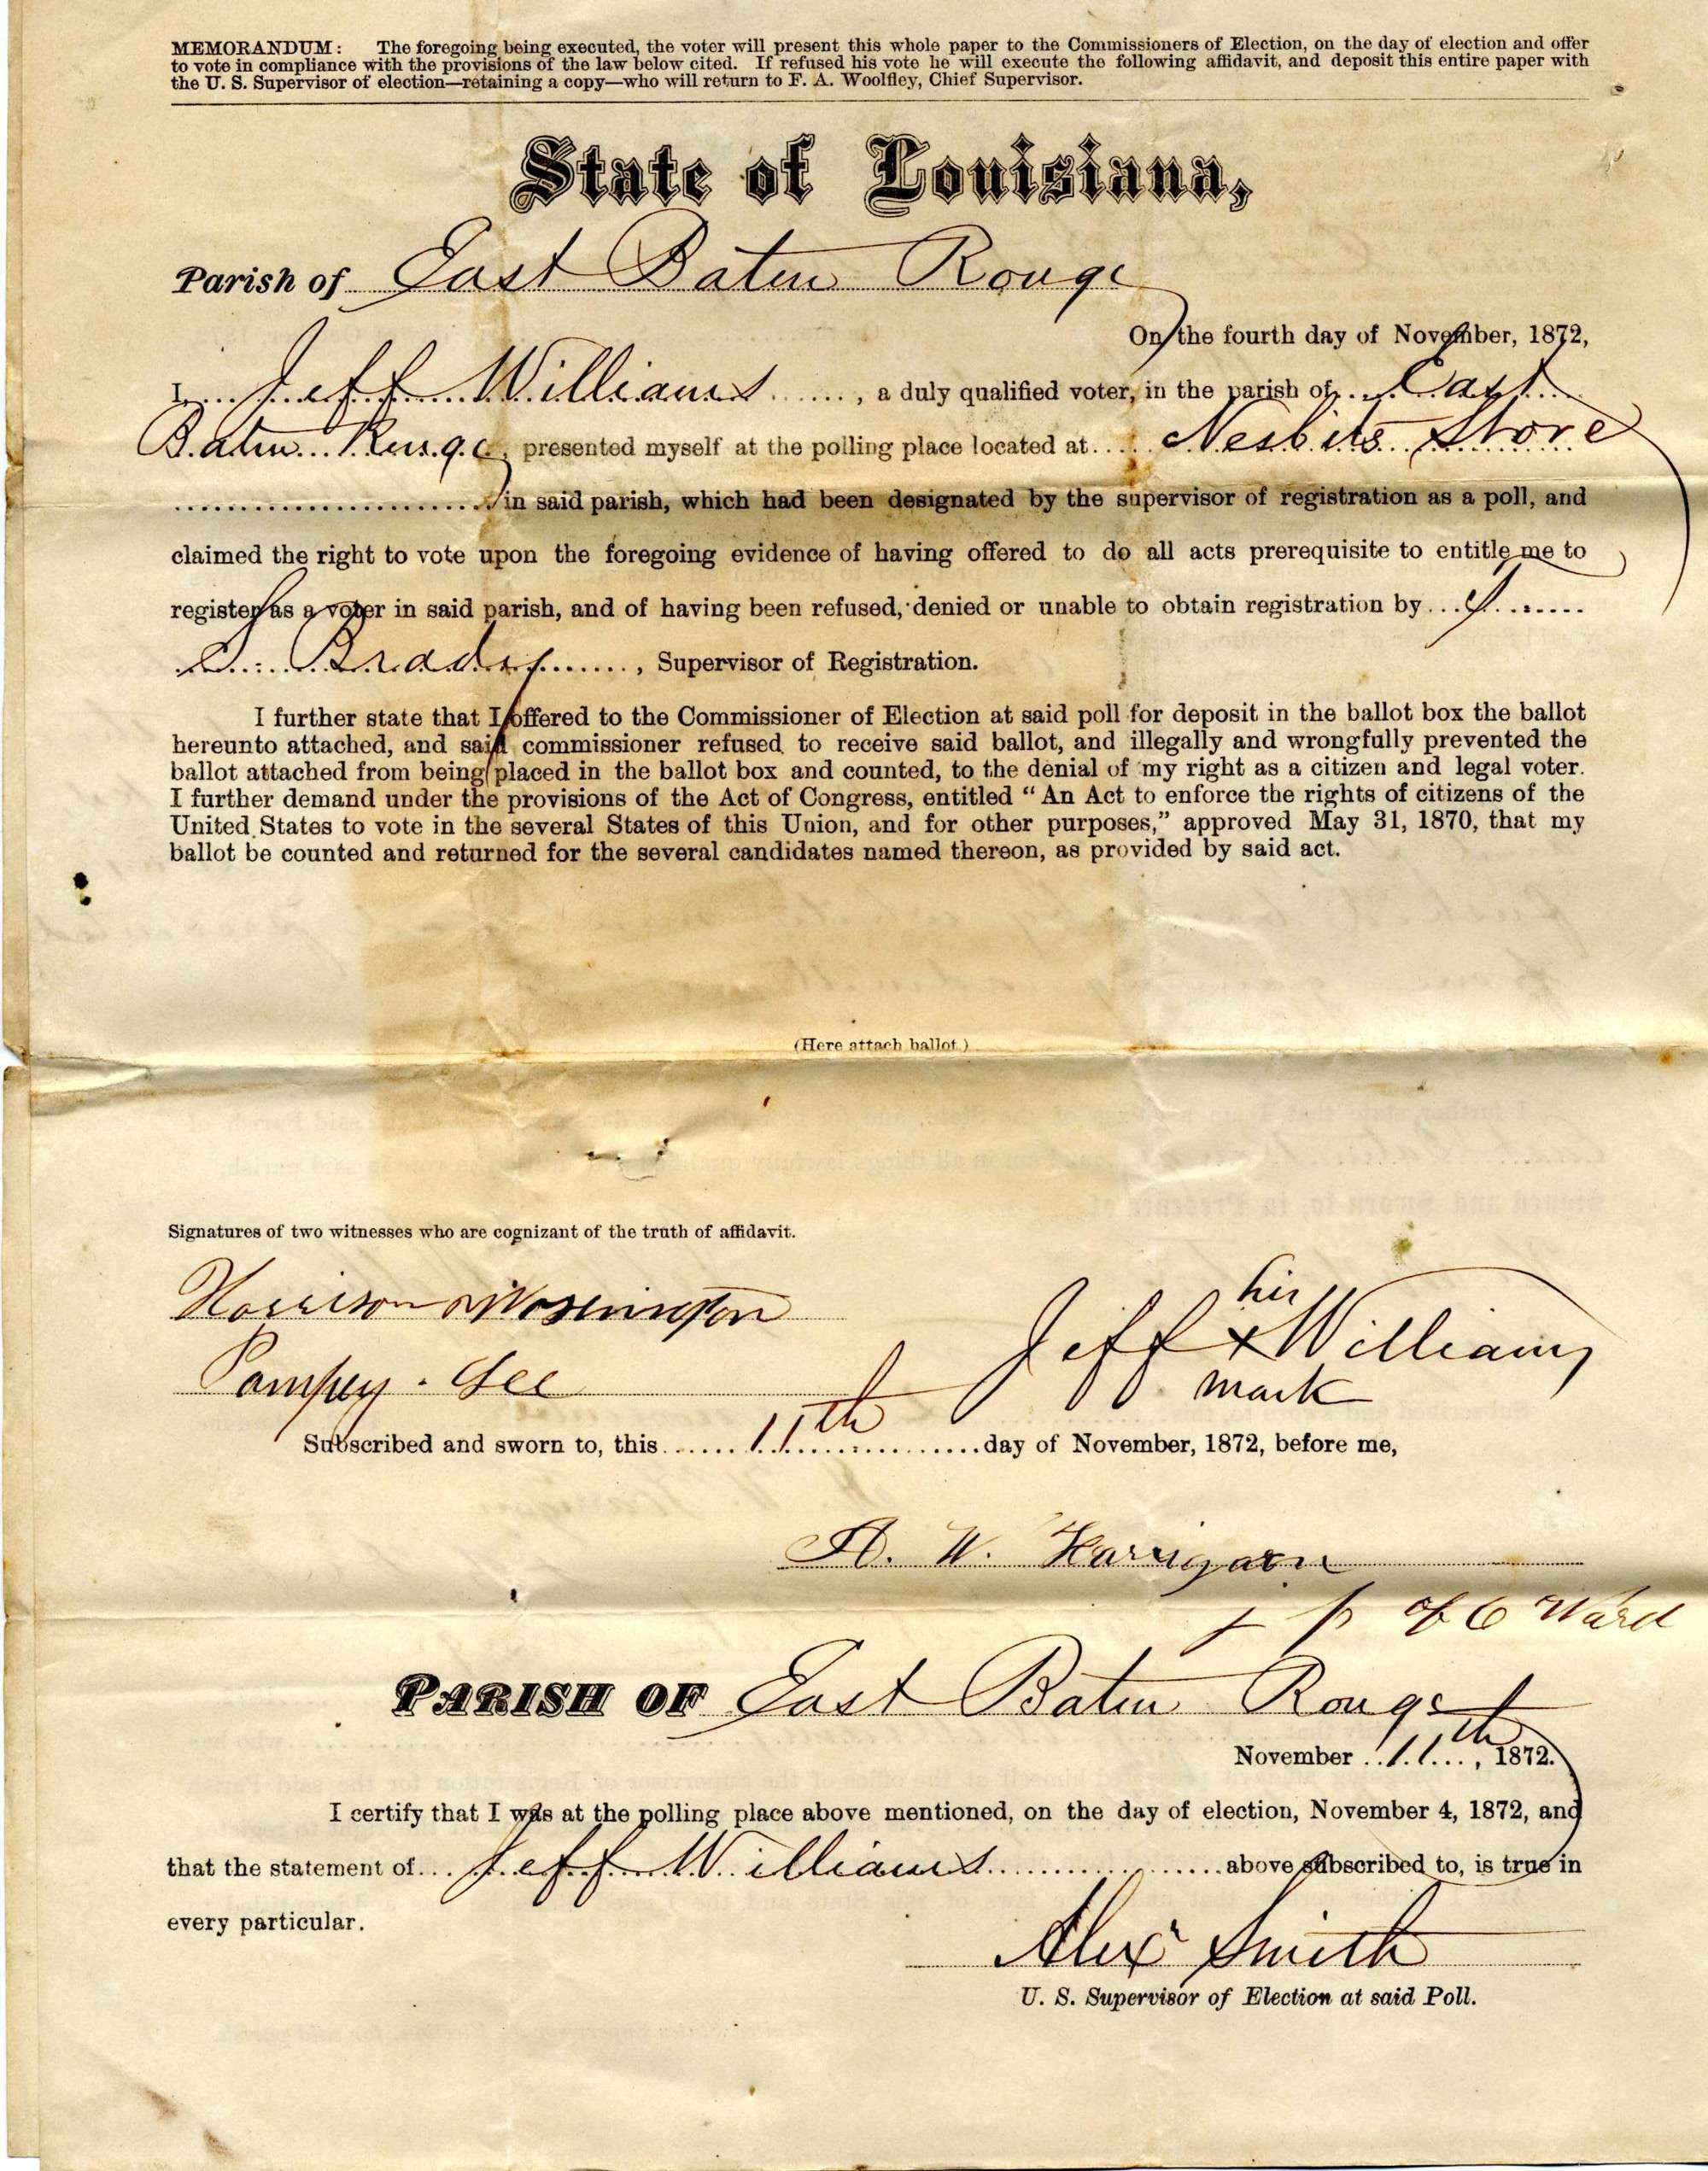 MEMORANDUM: The foregoing being executed, the voter will present this whole paper to the Commissioners of Election, on the day of election and offer
to vote in compliance with the provisions of the law below cited. If refused his vote he will execute the following affidavit, and deposit this entire paper with
the U. S. Supervisor of election—retaining a copy—who will return to F. A. Woolfley, Chief Supervisor.
State of Louisiana,
Parish of East Baton Rouge
On the fourth day of November, 1872,
I Jeff Williams, a duly qualified voter, in the parish of East
Baton Rouge, presented myself at the polling place located at Nesbits Store
in said parish, which had been designated by the supervisor of registration as a poll, and
claimed the right to vote upon the foregoing evidence of having offered to do all acts prerequisite to entitle me to
register as a voter in said parish, and of having been refused, denied or unable to obtain registration by
Brady, Supervisor of Registration.
I further state that I offered to the Commissioner of Election at said poll for deposit in the ballot box the ballot
hereunto attached, and said commissioner refused to receive said ballot, and illegally and wrongfully prevented the
ballot attached from being placed in the ballot box and counted, to the denial of my right as a citizen and legal voter.
I further demand under the provisions of the Act of Congress, entitled "An Act to enforce the rights of citizens of the
United States to vote in the several States of this Union, and for other purposes," approved May 31, 1870, that my
ballot be counted and returned for the several candidates named thereon, as provided by said act.
(Here attach ballot.)
Signatures of two witnesses who are cognizant of the truth of affidavit.
Harrison
his
Jeff x Williams
Pompey Lee
mark
Subscribed and sworn to, this 11th day of November, 1872, before me,
A. W. Harrigan
j p of 6 Ward
PARISH OF East Baton Rouge
November 11th, 1872.
I certify that I was at the polling place above mentioned, on the day of election, November 4, 1872, and
that the statement of Jeff Williams above subscribed to, is true in
every particular.
Alex Smith
U. S. Supervisor of Election at said Poll.